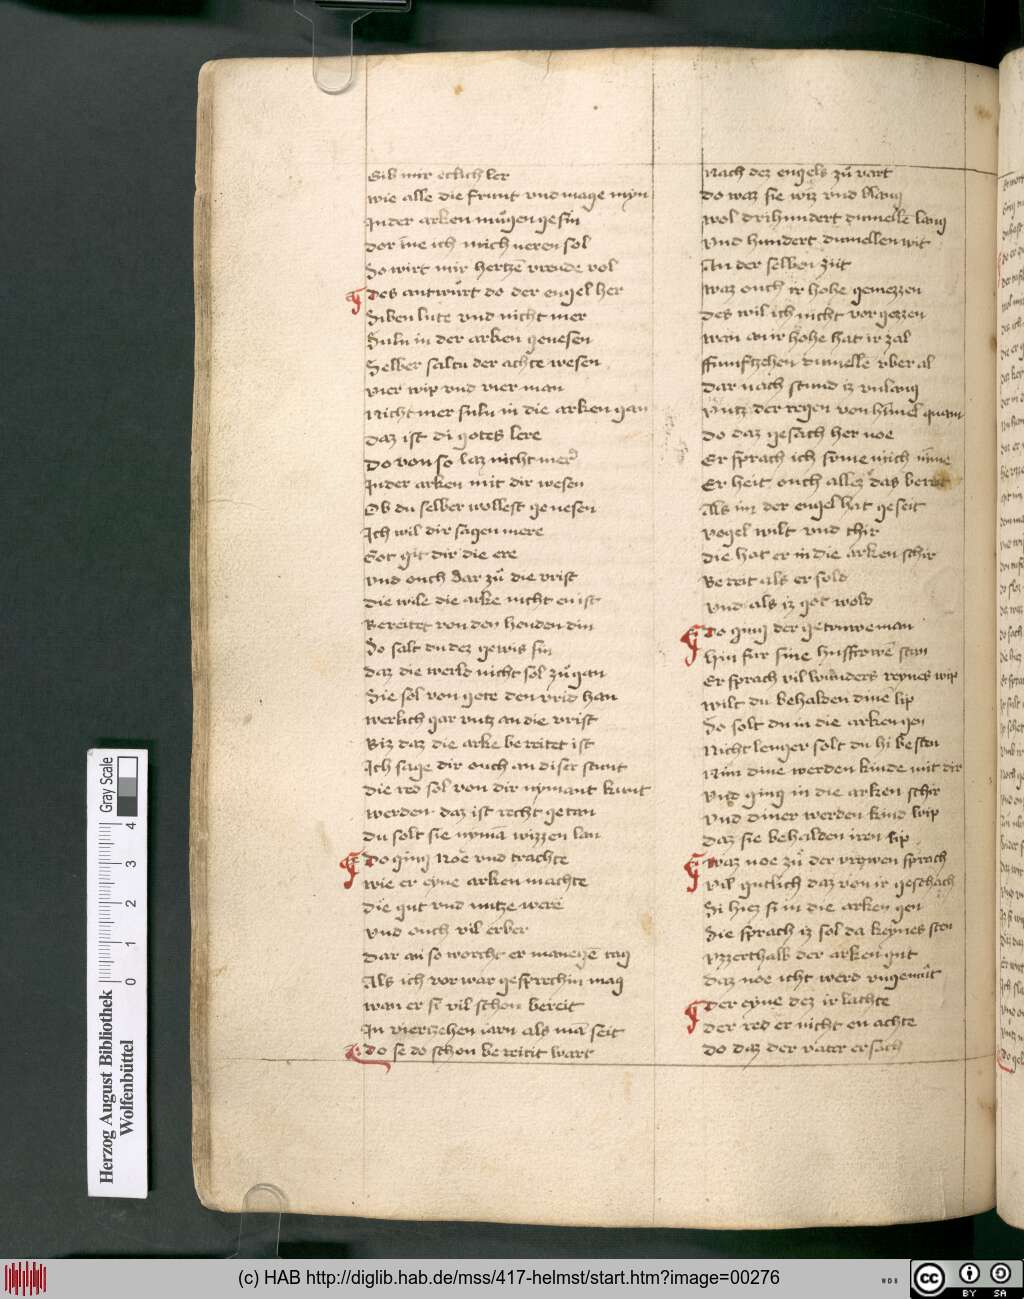 Gib mir etlich ler
wie alle die frunt vnd mage myn
Inder arken mugen gesin
dor ine ich mich neren sol
So wirt mir hertzē vreude vol
des antwurt do der engel her
Siben lute vnd nicht mer
Suln in der arken genesen
Selber saltu der achte wesen
vier wip vnd vier man
Nicht mer suln in die arken gan
daz ist di gotes lere
do von so laz nicht mer
Inder arken mit dir wesen
Ob du selber wollest genesen
Ich wil dir sagen mere
Got git dir die ere
vnd ouch dar zů die vrist
die wile die arke nicht en ist
Bereitet von den henden din
So salt du dez gewis sin
daz die werld nicht sol zů gan
Sie sol von gote den vrid han
werlich gar vntz an die vrist
Biz daz die arke bereitet ist
Ich sage dir ouch an diser stunt
die red sol von dir nymant kunt
werden daz ist recht getan
du solt sie nymā wizzen lan
Do ging Noe vnd trachte
wie er eyne arken machte
die gut vnd nutze were
vnd ouch vil erber
dar an so worcht er manegē tag
Als ich vor war gesprechin mag
wan er si vil schon bereit
In viertzehen iarn als mā seit
do se do schon bereitit wart
Nach dez engels zů vart
do waz sie wiz vnd blang
wol drihundert dumelle lang
vnd hundert dumellen wit
An der selben zit
waz ouch ir hohe gemezzen
des wil ich nicht vorgezzen
wan an ir hohe hat ir zal
ffunftzehen dumelle vber al
dar nach stund iz vnlang
vntz der regen von himel quam
do daz gesach her noe
Er sprach ich sume mich nīme
Er heit ouch allez das bereit
Als im der engel hat geseit
vogel wilt vnd thir
die hat er in die arken schir
Bereit als er sold
vnd als iz got wold
do ging der getruwe man
hin fur sine husfrowē stan
Er sprach vil wunders reynes wip
wilt du behalden dinē lip
So solt du in die arken gen
Nicht lenger solt du hi besten
Nim dine werden kinde mit dir
vnd ging in die arken schir
vnd diner werden kind wip
daz sie behalden iren lip
waz noe zů der vrowen sprach
vil gutlich daz von ir geschach
Si hiez si in die arken gen
Sie sprach iz sol da keynes sten
vzzerthalb der arken gut
daz noe icht werd vngemůt
der eyne dez ir lachte
der red er nicht en achte
do daz der vater ersach
Herzog August Bibliothek
Wolfenbüttel
0 1 2 3 4
Gray Scale
(c) HAB http://diglib.hab.de/mss/417-helmst/start.htm?image=00276
WDB
cc BY SA